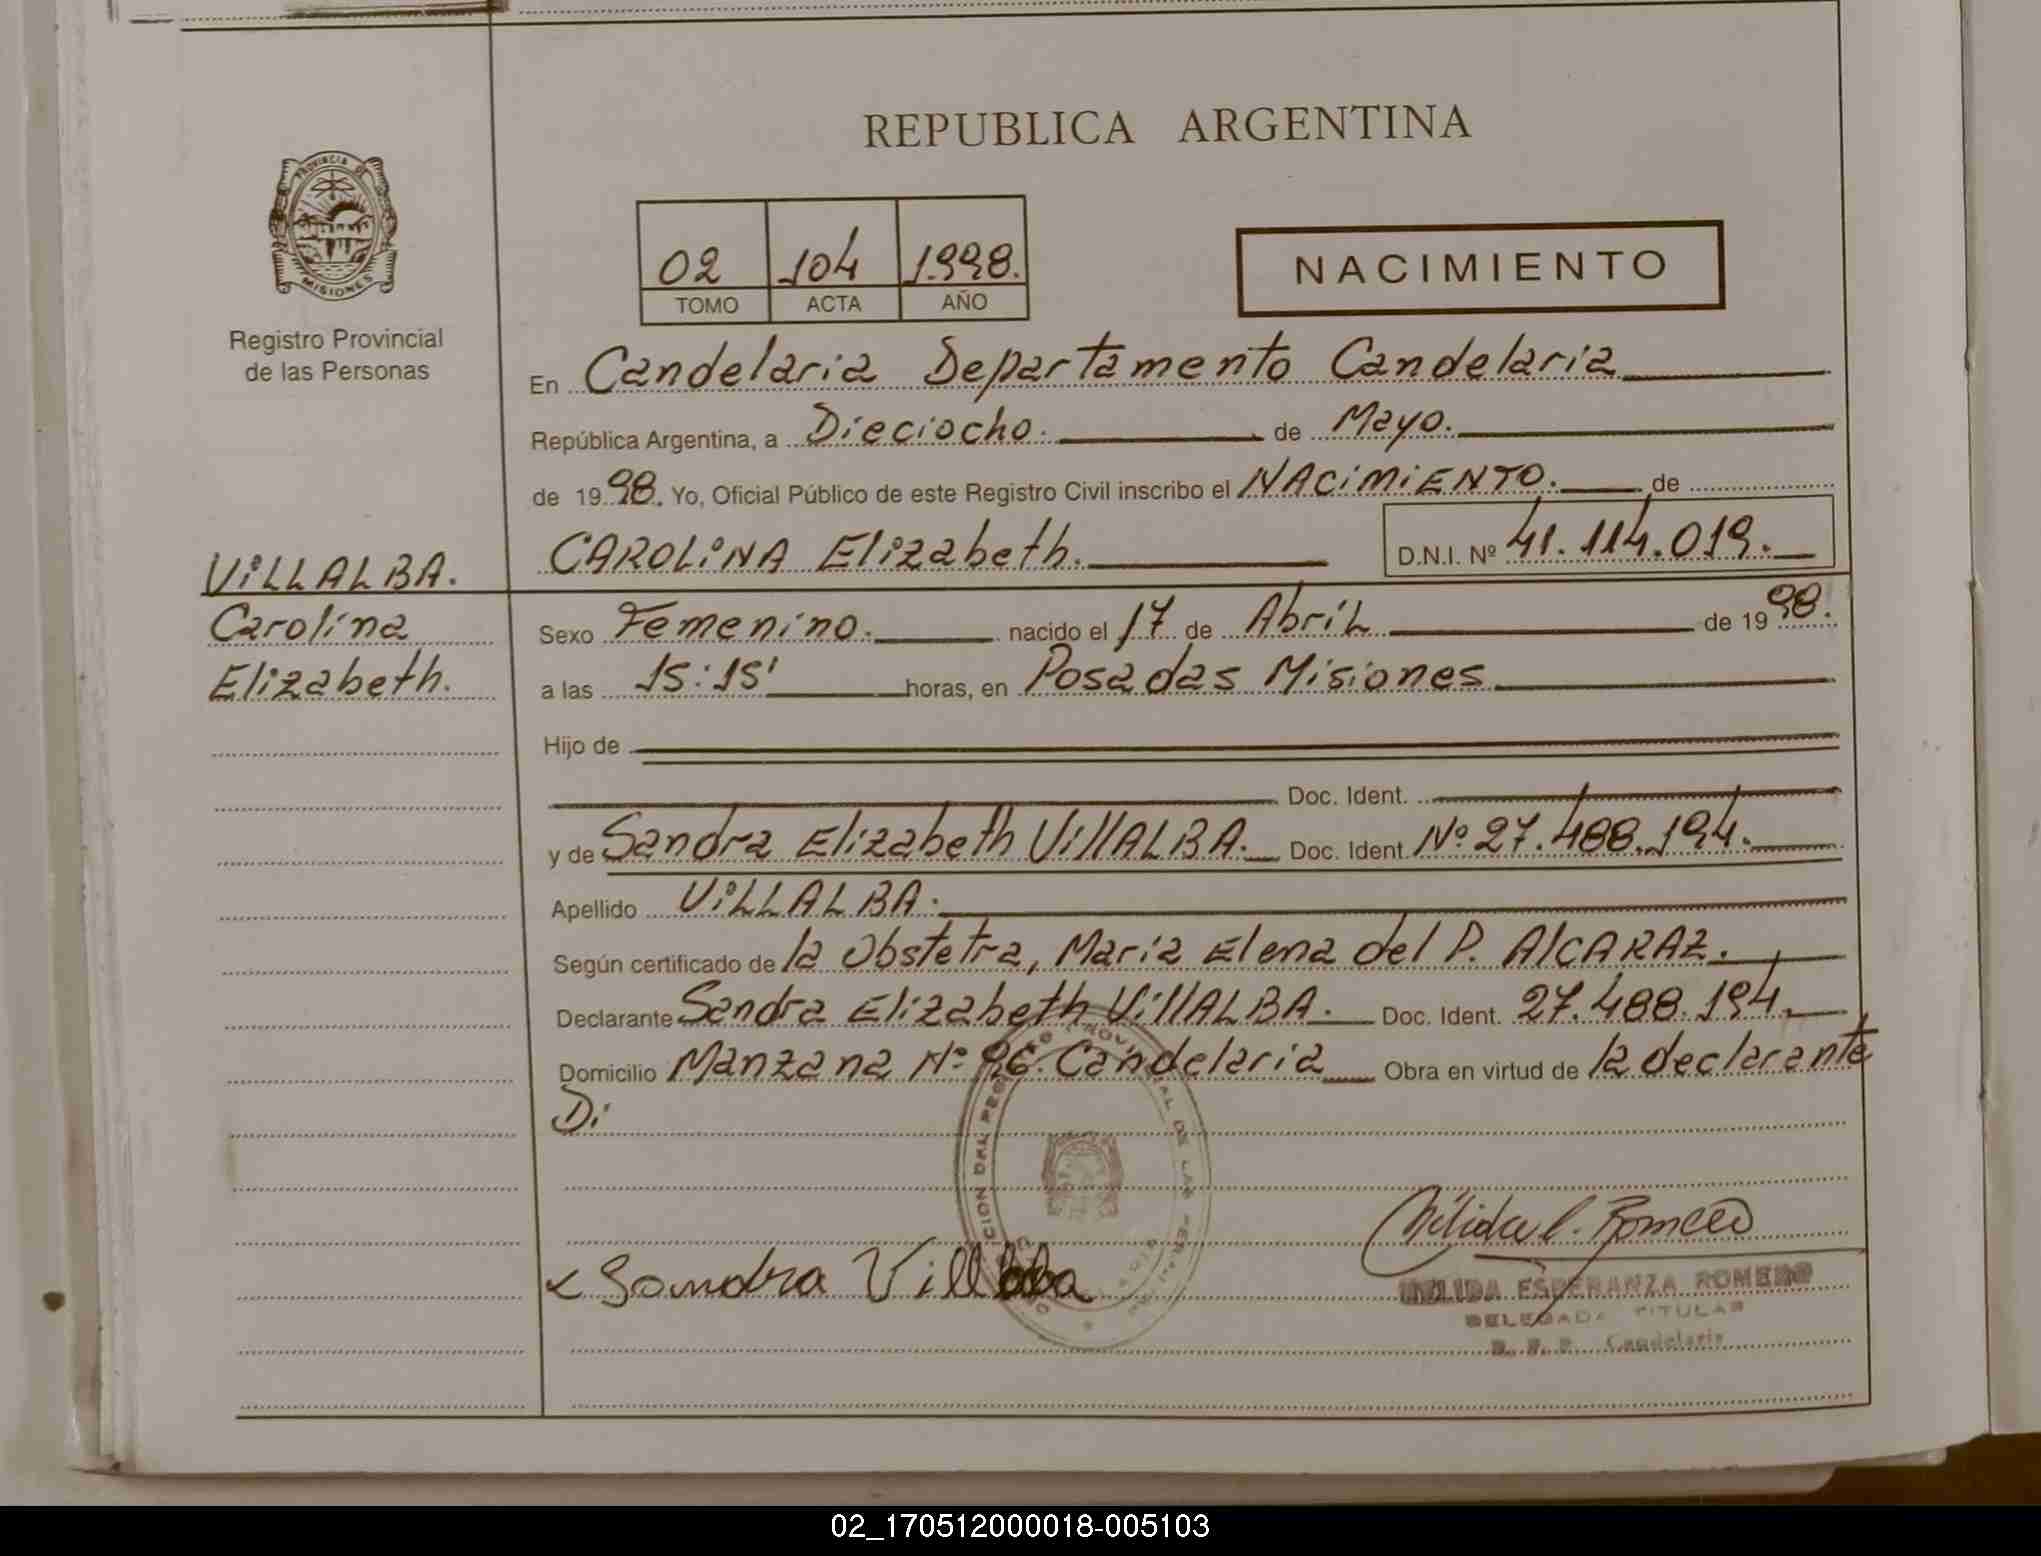 REPUBLICA ARGENTINA
PROVINCIA DE MISIONES
Registro Provincial
de las Personas
02 104 1.998.
TOMO ACTA AÑO
NACIMIENTO
En Candelaria Departamento Candelaria
República Argentina, a Dieciocho. de Mayo.
de 19 98. Yo, Oficial Público de este Registro Civil inscribo el NACIMIENTO. de
CAROLINA Elizabeth. D.N.I. Nº 41.114.019.
VILLALBA.
Carolina
Elizabeth.
Sexo Femenino. nacido el 17 de Abril de 19 98.
a las 15:15' horas, en Posadas Misiones
Hijo de
Doc. Ident.
y de Sandra Elizabeth VillALBA. Doc. Ident. Nº 27.488.194.
Apellido VILLALBA.
Según certificado de la Obstetra, Maria Elena del P. AlCARAZ.
Declarante Sandra Elizabeth VillALBA. Doc. Ident. 27.488.194.
Domicilio Manzana Nº 96. Candelaria Obra en virtud de la declarante
D:
Sandra Villalba
Nélida E. Romero
NELIDA ESPERANZA ROMERO
DELEGADA TITULAR
Candelaria
02_170512000018-005103